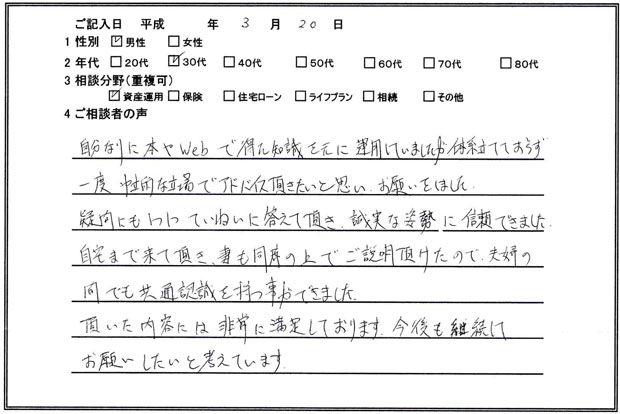 ご記入日 平成 年 3 月 20 日
1 性別 ☑男性 □女性
2 年代 □20代 ☑30代 □40代 □50代 □60代 □70代 □80代
3 相談分野(重複可)
☑資産運用 □保険 □住宅ローン □ライフプラン □相続 □その他
4 ご相談者の声
自分なりに本やWebで得た知識を元に運用していましたが体系立てておらず
一度中立的な立場でアドバイス頂きたいと思い、お願いをしました。
疑問にも1つ1つていねいに答えて頂き、誠実な姿勢に信頼できました。
自宅まで来て頂き、妻も同席の上でご説明頂けたので、夫婦の
間でも共通認識を持つ事ができました。
頂いた内容には非常に満足しております。今後も継続して
お願いしたいと考えています。